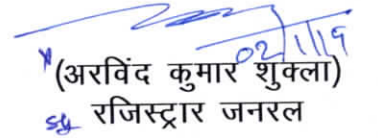 02/1/19
(अरविंद कुमार शुक्ला)
रजिस्ट्रार जनरल